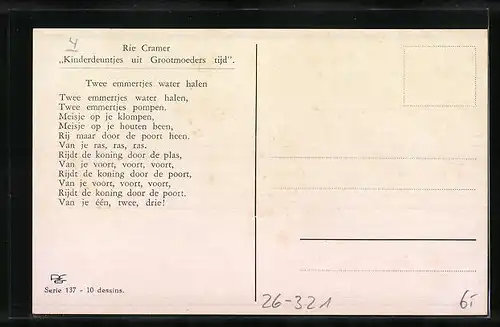 4
Rie Cramer
„Kinderdeuntjes uit Grootmoeders tijd".
Twee emmertjes water halen
Twee emmertjes water halen,
Twee emmertjes pompen.
Meisje op je klompen,
Meisje op je houten heen,
Rij maar door de poort heen.
Van je ras, ras, ras.
Rijdt de koning door de plas,
Van je voort, voort, voort,
Rijdt de koning door de poort,
Van je voort, voort, voort,
Rijdt de koning door de poort.
Van je één, twee, drie!
Serie 137 - 10 dessins.
26-321
6,-